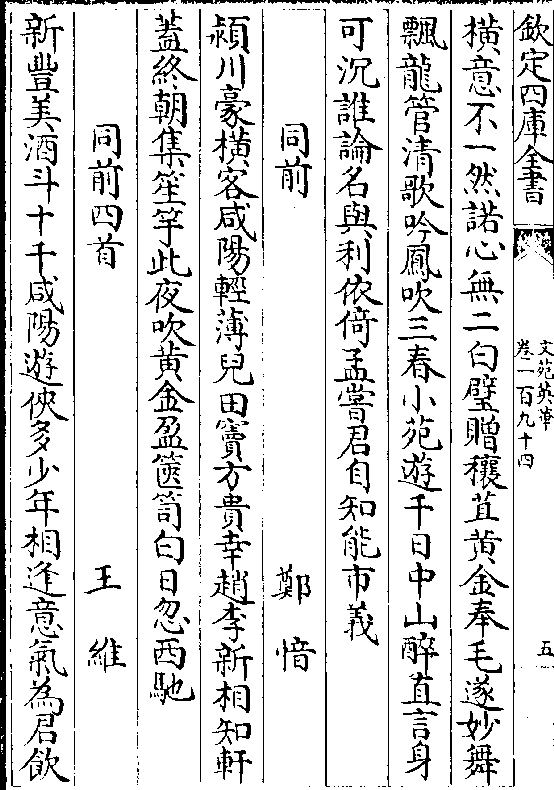 欽定四庫全書
文苑英華
卷一百九十四
五
橫意不一然諾心無二白璧贈穰苴黄金奉毛遂妙舞
飄龍管清歌吟鳳吹三春小苑遊千日中山醉直言身
可沉誰論名與利依倚孟嘗君自知能市義
同前 鄭愔
潁川豪橫客咸陽輕薄兒田竇方貴幸趙李新相知軒
蓋終朝集笙竽此夜吹黄金盈篋笥白日忽西馳
同前四首 王維
新豐美酒斗十千咸陽遊俠多少年相逢意氣為君飲